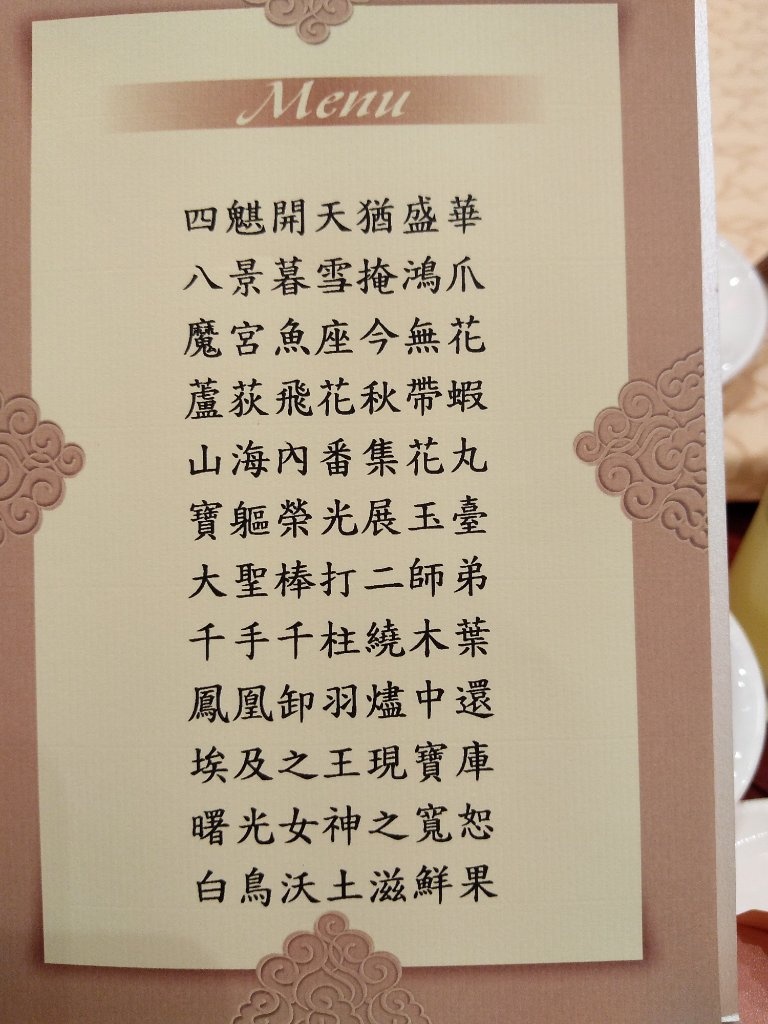 Menu
四魌開天猶盛華
八景暮雪掩鴻爪
魔宮魚座今無花
蘆荻飛花秋帶蝦
山海內番集花丸
寶軀榮光展玉臺
大聖棒打二師弟
千手千柱繞木葉
鳳凰卸羽燼中還
埃及之王現寶庫
曙光女神之寬恕
白鳥沃土滋鮮果